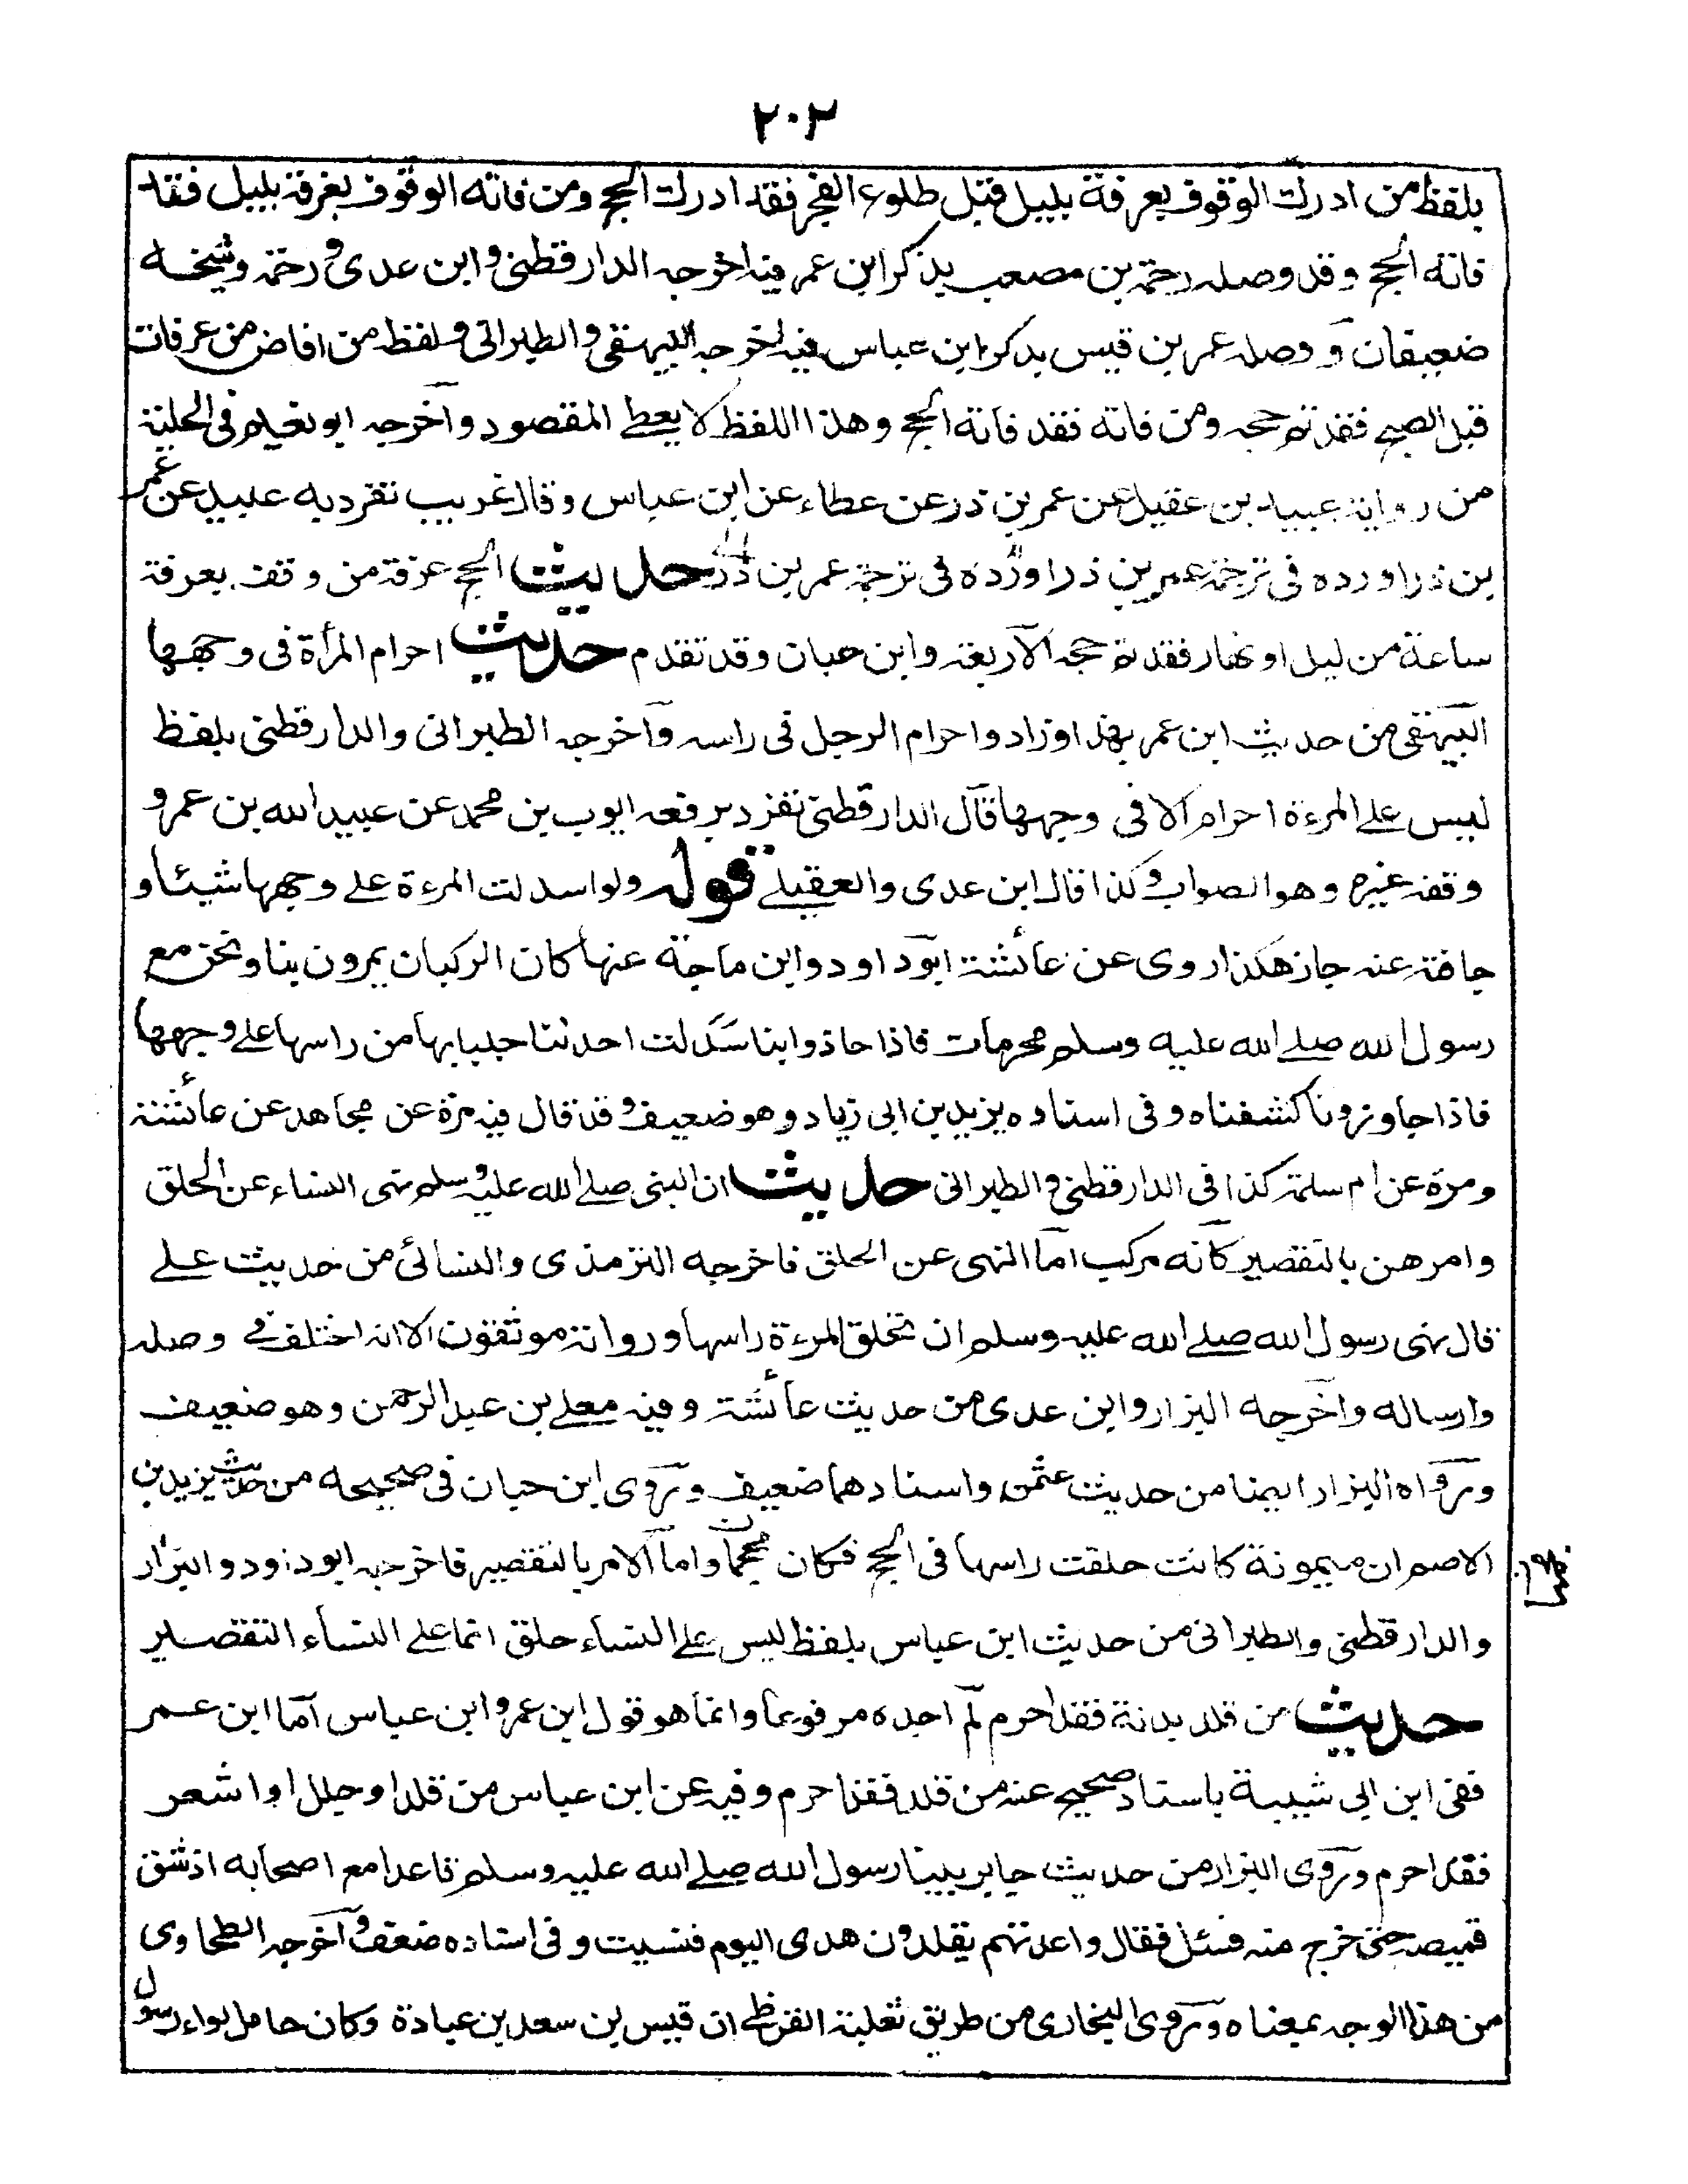 ٢٠٢
بلفظ من ادرك الوقوف بعرفة بليل قبل طلوع الفجر فقد ادرك الحج ومن فاته الوقوف بعرفة بليل فقد
فاته الحج وقد وصله رحمة بن مصعب بذكر ابن عمر فيه اخرجه الدارقطنى وابن عدى ورحمة وشيخه
ضعيفان ووصله عمر بن قيس بذكر ابن عباس فيه اخرجه البيهقى والطبرانى ولفظه من افاض من عرفات
قبل الصبح فقد تم حجه ومن فاته فقد فاته الحج وهذا اللفظ لا يعطى المقصود وآخرجه ابو نعيم فى الحلية
من رواية عبيد بن عقيل عن عمر بن ذر عن عطاء عن ابن عباس وقال غريب تفرد به عبيد عن عمر
بن ذر اورده فى ترجمة عمر بن ذر اورده فى ترجمة عمر بن ذر حديث الحج عرفة من وقف بعرفة
ساعة من ليل او نهار فقد تم حجه الآربعة وابن حبان وقد تقدم حديث احرام المرأة فى وجهها
البيهقى من حديث ابن عمر بهذا وزاد واحرام الرجل فى راسه وآخرجه الطبرانى والدارقطنى بلفظ
ليس على المرءة احرام الا فى وجهها قآل الدارقطنى تفرد برفعه ايوب بن محمد عن عبيد الله بن عمر و
وقفه غيره وهو الصواب وكذا قال ابن عدى والعقيلے قوله ولو اسدلت المرءة على وجهها شيئا و
جافته عنه جاز هكذا روى عن عائشة ابوداود وابن ماجة عنها كان الركبان يمرون بنا ونحن مع
رسول الله صلے الله عليه وسلم محرمات فاذا حاذوا بنا سدلت احدنا جلبابها من راسها على وجهها
فاذا جاوزونا كشفناه وفى اسناده يزيد بن ابى زياد وهو ضعيف وقد قال فيه مرة عن مجاهد عن عائشة
ومرة عن ام سلمة كذا فى الدارقطنى والطبرانى حديث ان النبى صلے الله عليه وسلم نهى النساء عن الحلق
وامرهن بالتقصير كآنه مركب آما النهى عن الحلق فاخرجه الترمذى والنسائى من حديث على
قال نهى رسول الله صلے الله عليه وسلم ان تحلق المرءة راسها ورواته موثقون الا انه اختلف فى وصله
وارساله وآخرجه البزار وابن عدى من حديث عائشة وفيه معلى بن عبد الرحمن وهو ضعيف
ورواه البزار ايضا من حديث عثمن واسنادهما ضعيف وروى ابن حبان فى صحيحه من حديث يزيد بن
الاصم ان ميمونة كانت حلقت راسها فى الحج فكان محجما وآما الآمر بالتقصير فاخرجه ابو داود والبزار
والدارقطنى والطبرانى من حديث ابن عباس بلفظ ليس على النساء حلق انما على النساء التقصير
حديث من قلد بدنة فقد احرم لم اجده مرفوعا وانما هو قول ابن عمر وابن عباس آما ابن عمر
ففى ابن ابى شيبة باسناد صحيح عنه من قلد فقد احرم وفيه عن ابن عباس من قلد او جلل او اشعر
فقد احرم وروى البزار من حديث جابر بينا رسول الله صلے الله عليه وسلم قاعدا مع اصحابه اذ شق
قميصه حتى خرج منه فسئل فقال واعدتهم يقلدون هدى اليوم فنسيت وفى اسناده ضعف وآخرجه الطحاوى
من هذا الوجه بمعناه وروى البخارى من طريق ثعلبة القرظى ان قيس بن سعد بن عبادة وكان حامل لواء رسول